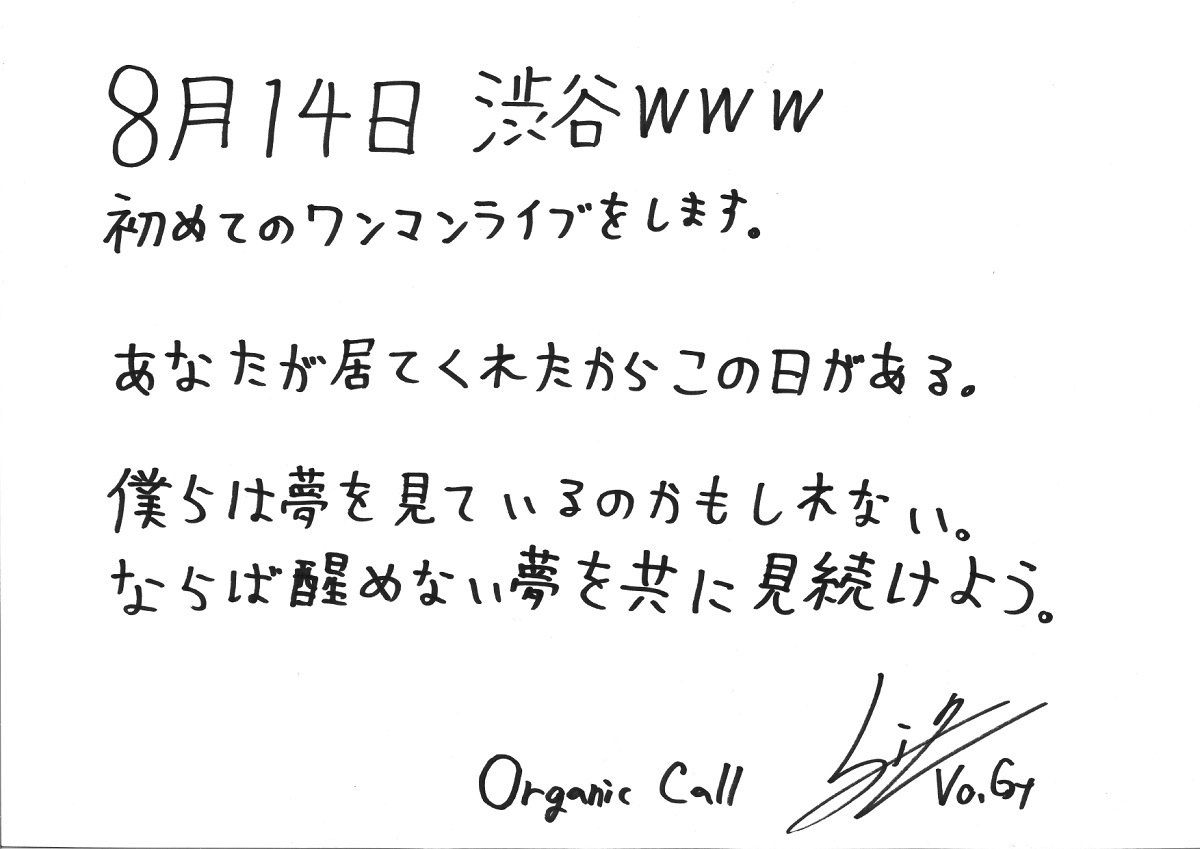 8月14日 渋谷WWW
初めてのワンマンライブをします。
あなたが居てくれたからこの日がある。
僕らは夢を見ているのかもしれない。
ならば醒めない夢を共に見続けよう。
Organic Call Vo.Gt